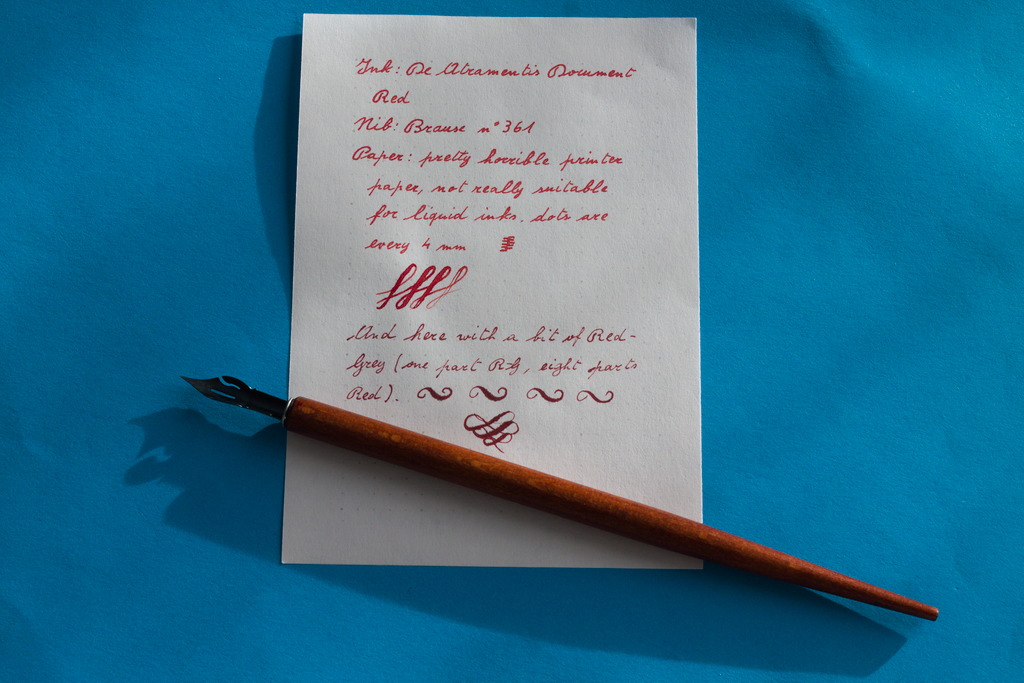 Ink: De Atramentis Document
Red
Nib: Brause n° 361
Paper: pretty horrible printer
paper, not really suitable
for liquid inks. dots are
every 4 mm
And here with a bit of Red-
Grey (one part R-G, eight parts
Red).